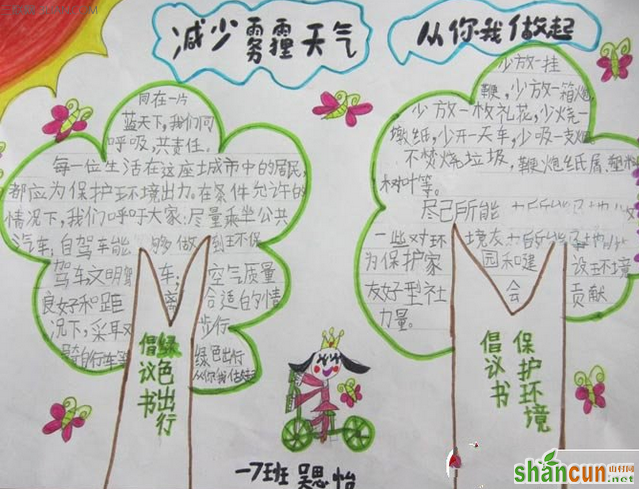 减少雾霾天气
从你我做起
同在一片
蓝天下,我们同
呼吸,共责任。
每一位生活在这座城市中的居民,
都应为保护环境出力。在条件允许的
情况下,我们呼吁大家:尽量乘坐公共
汽车,自驾车能够做到环保
驾车文明驾车;空气质量
良好和距离合适的情
况下,采取步行
骑自行车
绿色出行
从你我做起
绿色出行
倡议书
少放一挂
鞭,少放一箱烟,
少放一枚礼花,少烧一
墩纸,少开一天车,少吸一支烟。
不焚烧垃圾,鞭炮纸屑,塑料
树叶等。
尽己所能
一些对环境友
为保护家园和建设环境
友好型社会贡献
力量。
保护环境
倡议书
一7班 吴思怡
shancun
山村网
.net